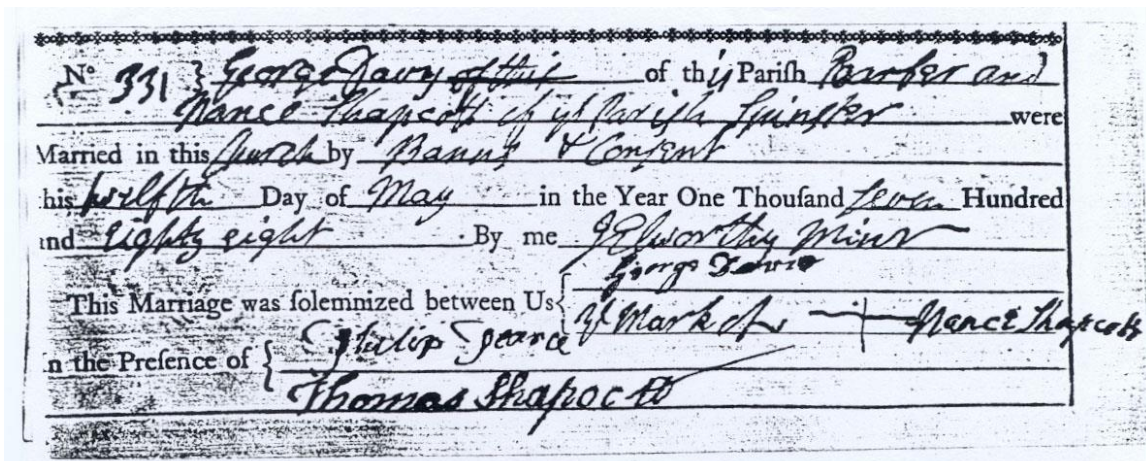 No 331 } George Davy of this of this Pariſh Barber and
Nance Shapcott of ye Parish Spinster were
Married in this Church by Banns & Conſent
his twelfth Day of May in the Year One Thouſand Seven Hundred
nd Eighty eight By me J Elworthy Minr
This Marriage was ſolemnized between Us { George Davie
ye Mark of + Nance Shapcott
n the Preſence of { Philip Pearce
Thomas Shapoctt